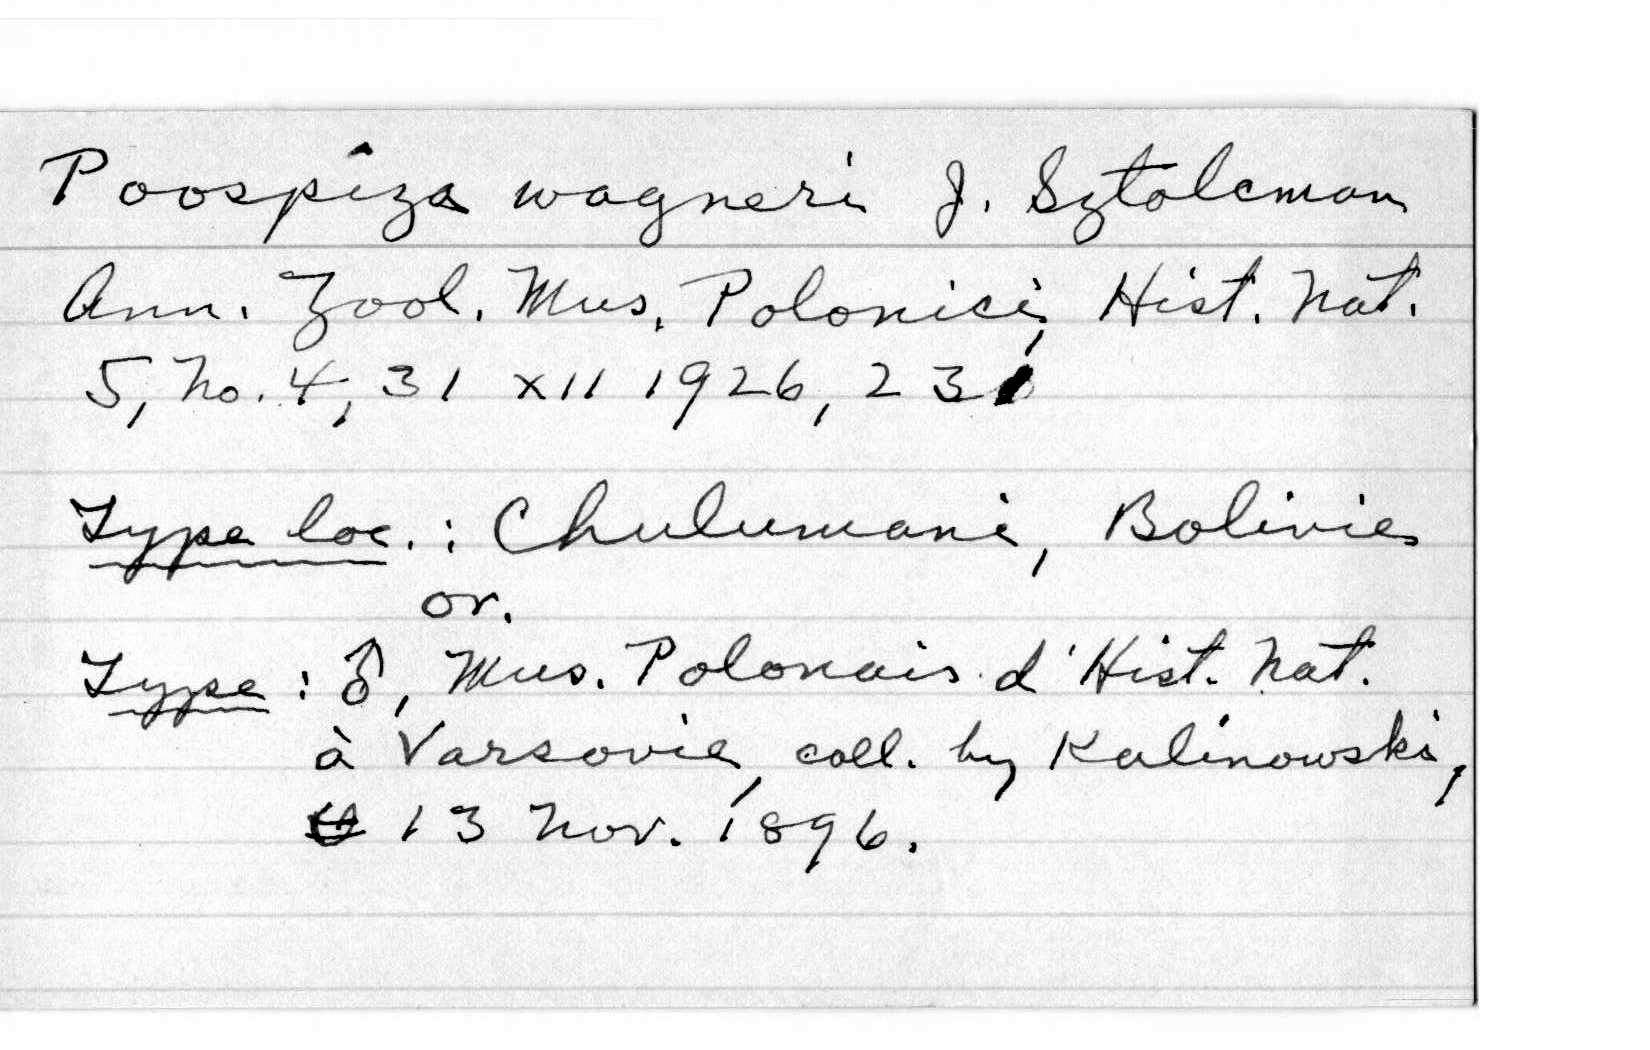 Poospiza wagneri J. Sztolcman
Ann. Zool. Mus. Polonici, Hist. Nat.
5, No. 4, 31 XII 1926, 231
Type loc.: Chulumani, Bolivie
or.
Type: ♂, Mus. Polonais d'Hist. Nat.
à Varsovie, coll. by Kalinowski,
13 Nov. 1896.